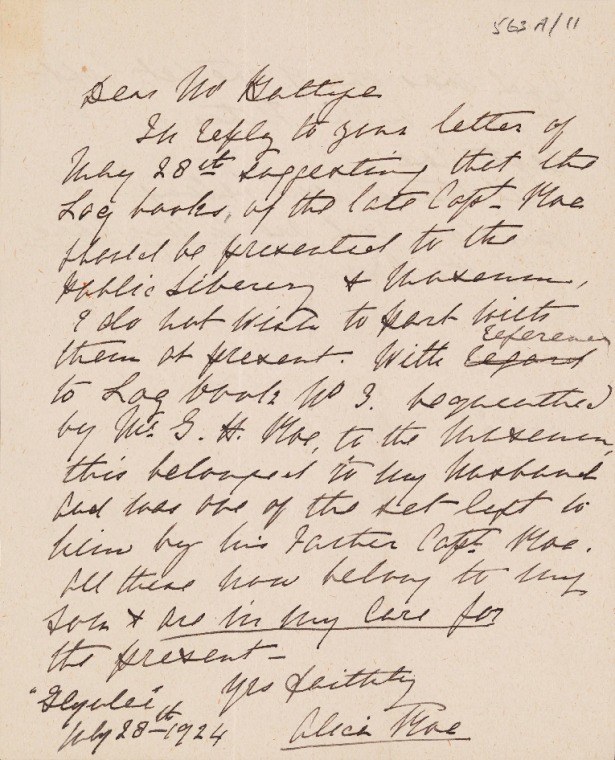 563 A/11
Dear Mr Battye
In reply to your letter of
May 28th suggesting that the
Log books, of the late Capt- Roe
should be presented to the
Public Liberery & Museum,
I do not wish to part with
them at present. With regard reference
to Log book No 3. bequeathed
by Mr. G. H. Roe, to the Museum,
this belonged to my husband
and was one of the set left to
him by his Father Capt. Roe.
All these now belong to my
son & are in my care for
the present-
Yrs faithly
July 28th 1924
Alice Roe